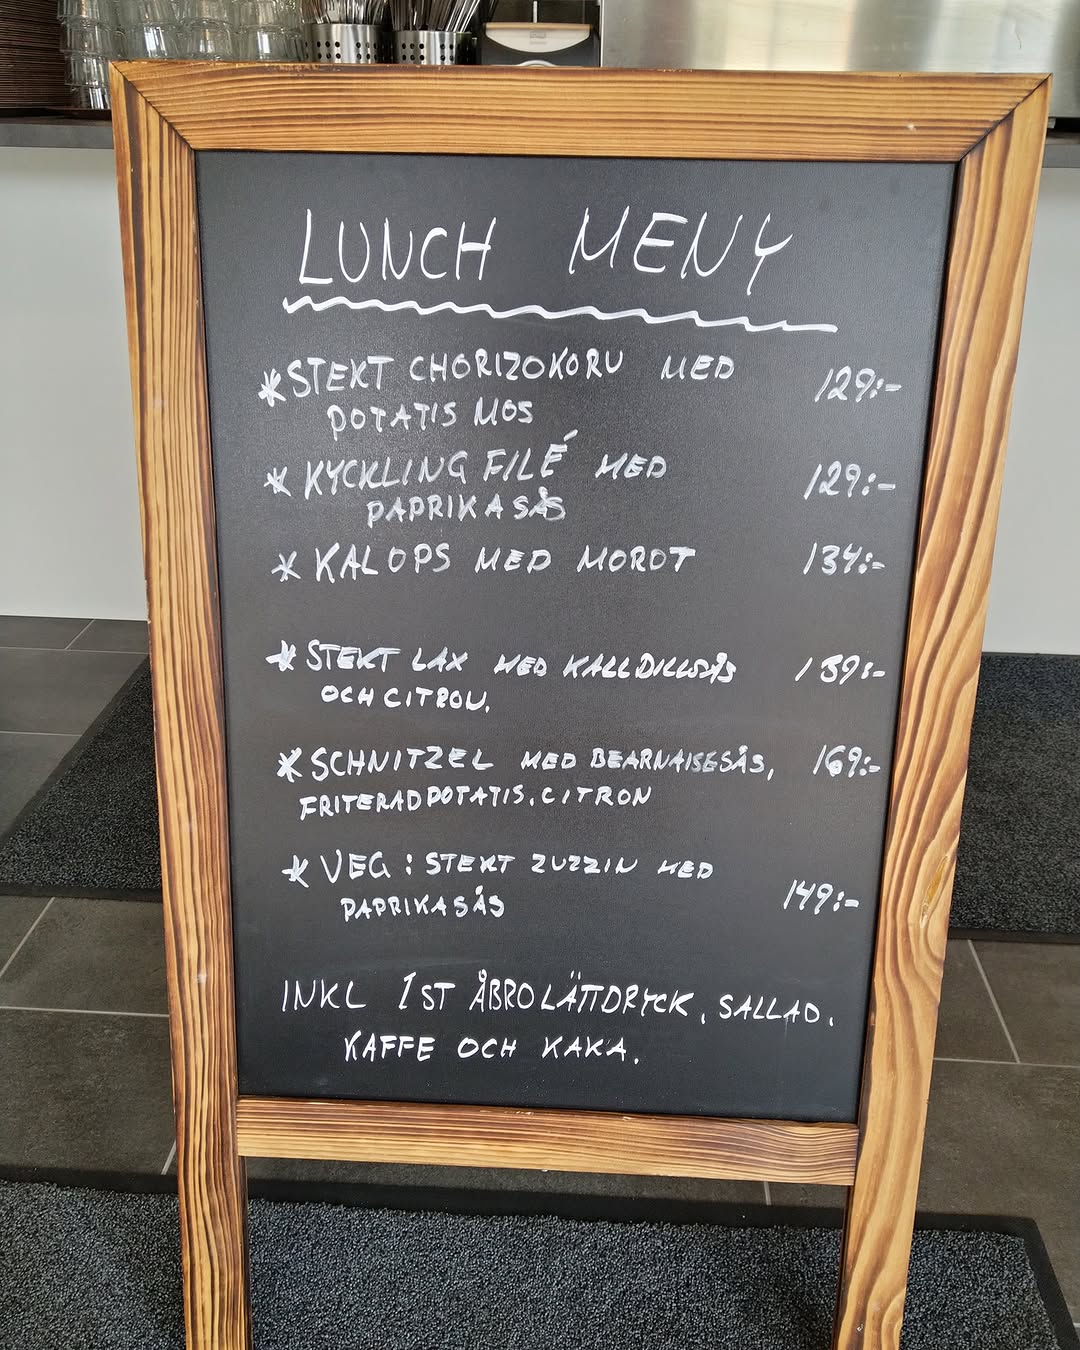 LUNCH MENY
* STEKT CHORIZOKORV MED 129:-
POTATIS MOS
* KYCKLING FILÉ MED 129:-
PAPRIKASÅS
* KALOPS MED MOROT 134:-
* STEKT LAX MED KALLDILLSÅS 139:-
OCH CITRON.
* SCHNITZEL MED BEARNAISESÅS, 169:-
FRITERAD POTATIS, CITRON
* VEG: STEKT ZUZZIN MED
PAPRIKASÅS 149:-
INKL 1ST ÅBRO LÄTTDRYCK, SALLAD,
KAFFE OCH KAKA.